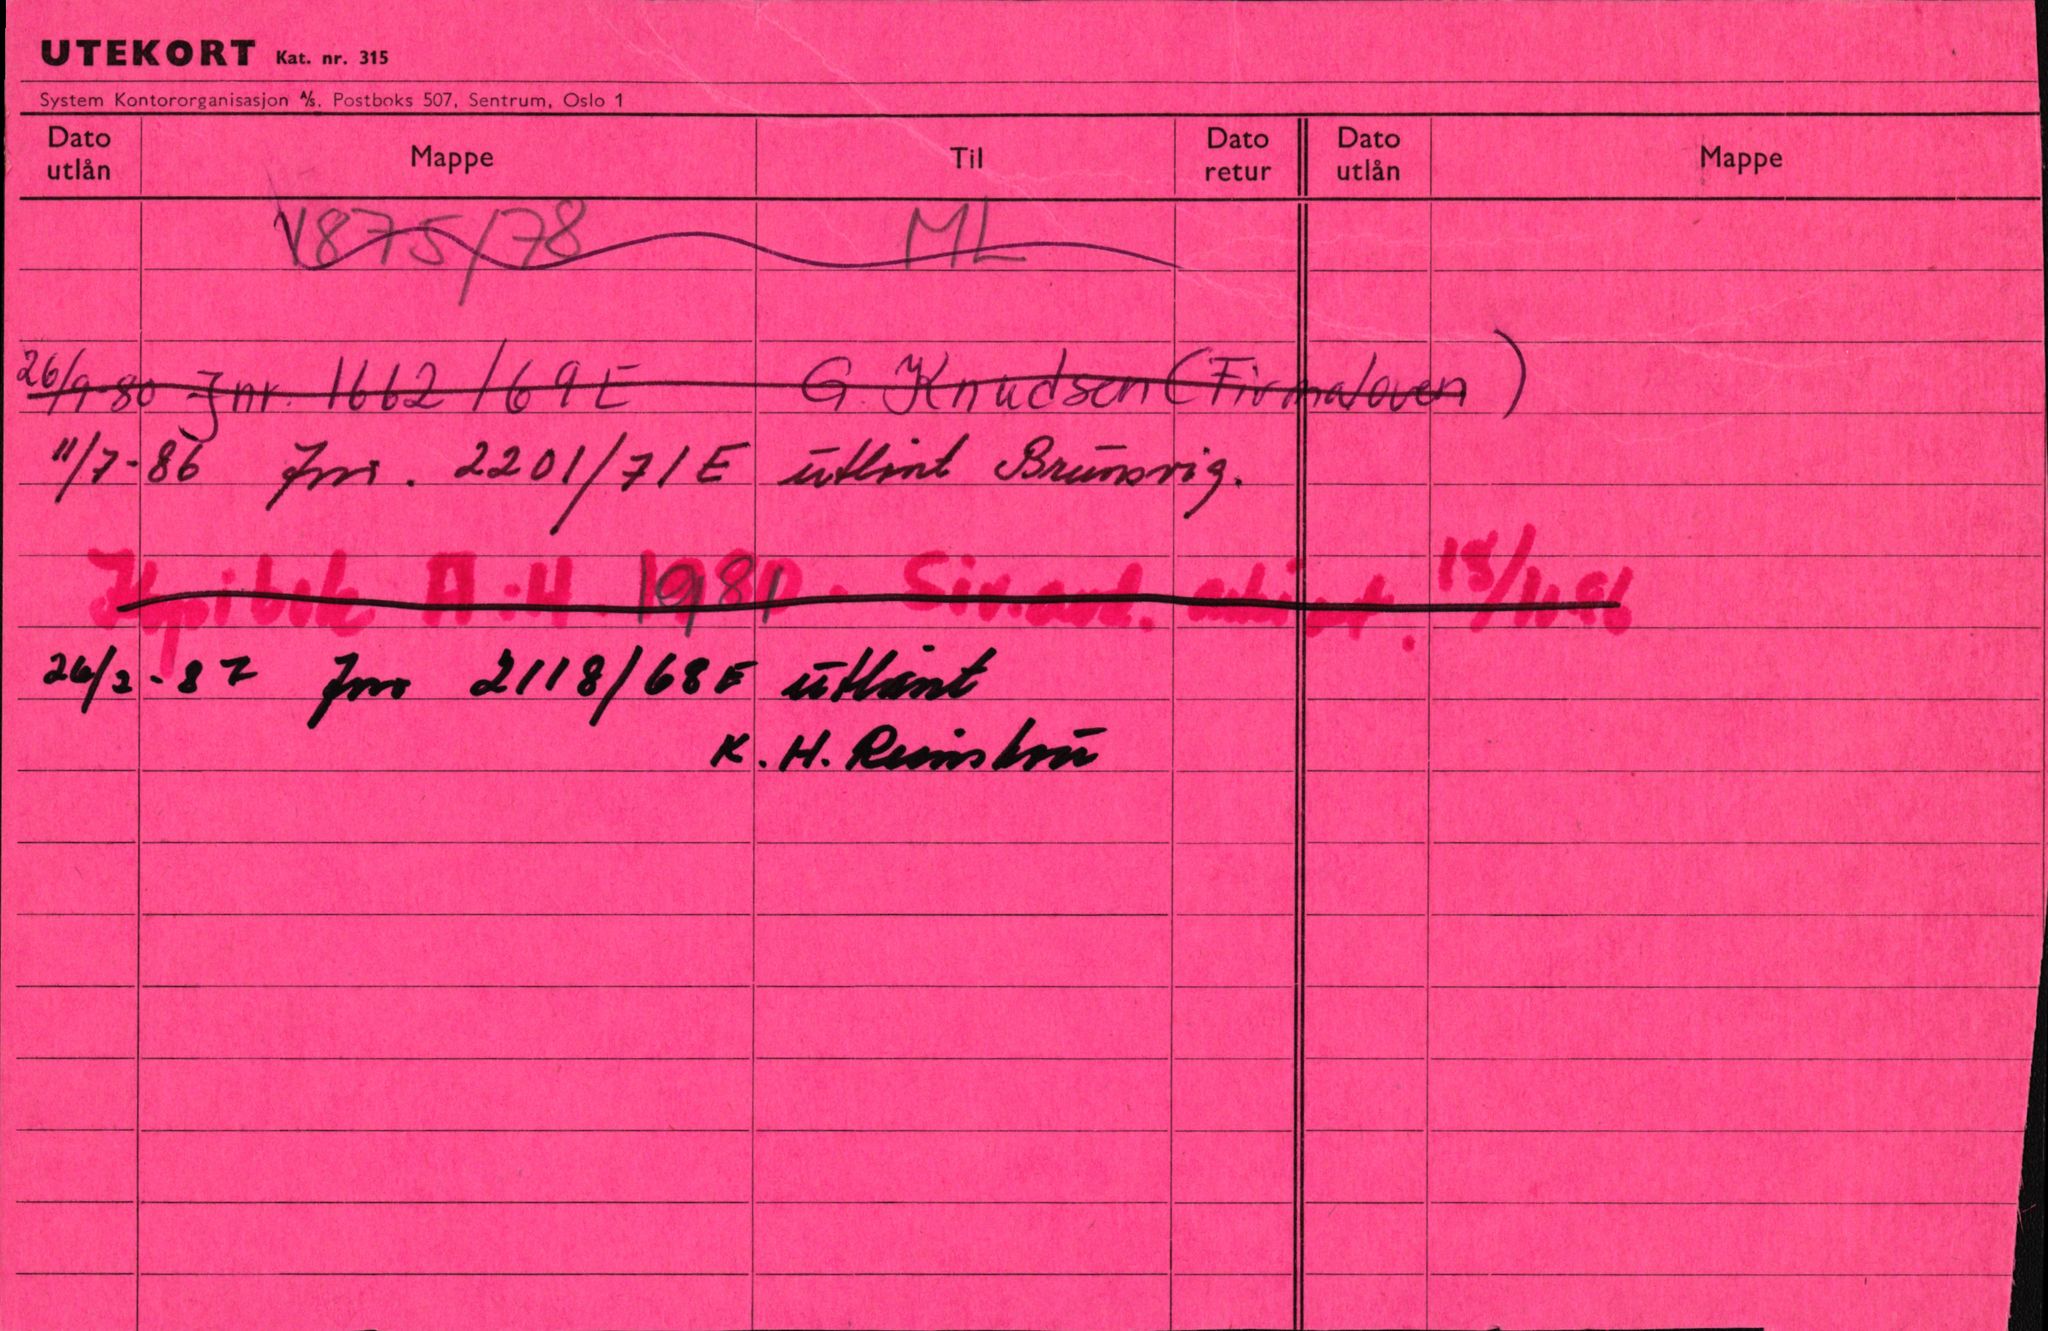 UTEKORT Kat. nr. 315
System Kontororganisasjon A/S. Postboks 507, Sentrum, Oslo 1
Dato utlån Mappe Til Dato retur Dato utlån Mappe
1875/78 ML
26/9-80 Jnr. 1662/69E G. Knudsen (Firmaloven)
11/7-86 Jnr. 2201/71E utlånt Brunsvig.
Kopibok A-H 1981
26/2-87 Jnr 2118/68E utlånt
K. H.